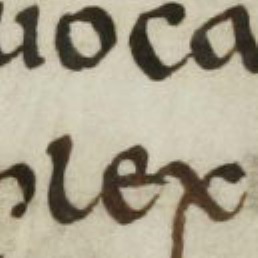 uoca
plex